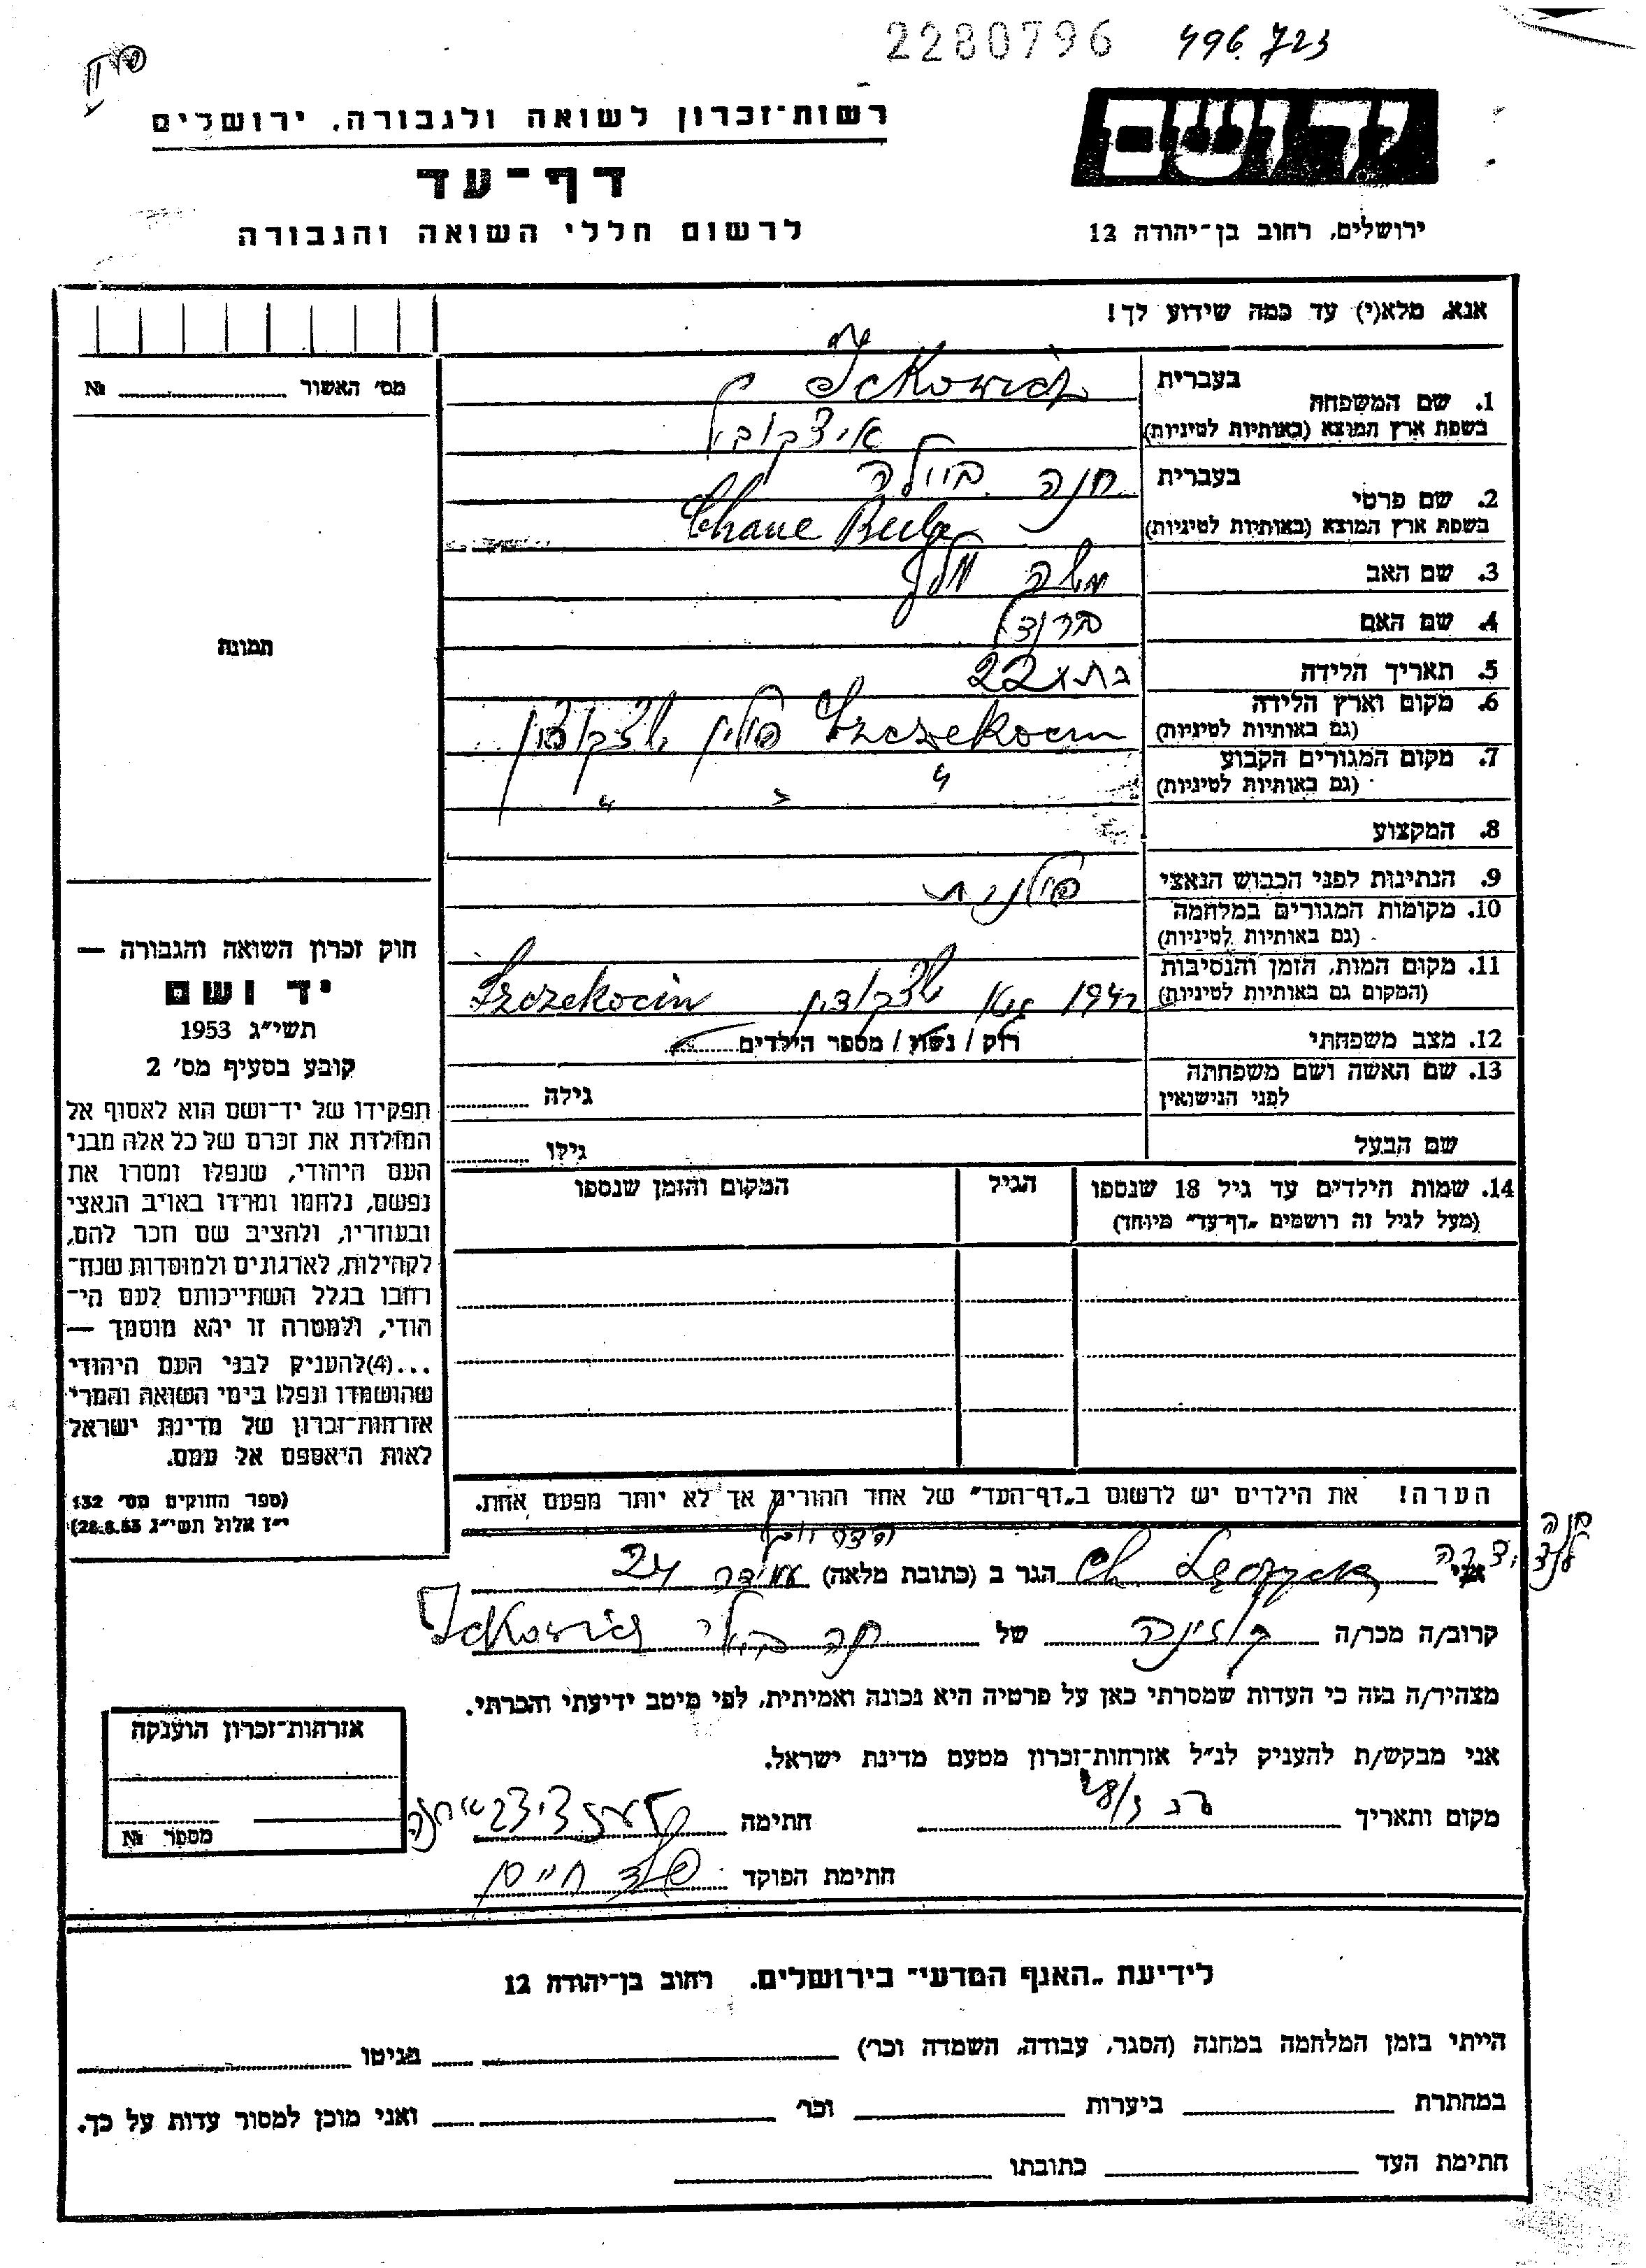 2280796 496.723
יד ושם
רשות־זכרון לשואה ולגבורה, ירושלים
דף־עד
לרשום חללי השואה והגבורה
ירושלים, רחוב בן־יהודה 12
אנא, מלא(י) עד כמה שידוע לך!
מס' האשור № 
תמונה
1. שם המשפחה בעברית Ickowicz
בשפת ארץ המוצא (באותיות לטיניות) איצקוביץ
2. שם פרטי בעברית חנה ביילה
בשפת ארץ המוצא (באותיות לטיניות) Chane Beile
3. שם האב משה
4. שם האם
5. תאריך הלידה בת 22
6. מקום וארץ הלידה (גם באותיות לטיניות) Szczekocin פולין
7. מקום המגורים הקבוע (גם באותיות לטיניות) " " "
8. המקצוע
9. הנתינות לפני הכבוש הנאצי פולנית
10. מקומות המגורים במלחמה (גם באותיות לטיניות)
11. מקום המות, הזמן והנסיבות (המקום גם באותיות לטיניות) 1942 Szczekocin
12. מצב משפחתי רוק / נשוי / מספר הילדים
13. שם האשה ושם משפחתה לפני הנישואין גילה
שם הבעל גילו
14. שמות הילדים עד גיל 18 שנספו
(מעל לגיל זה רושמים "דף־עד" מיוחד)
הגיל
המקום והזמן שנספו
חוק זכרון השואה והגבורה —
יד ושם
תשי"ג 1953
קובע בסעיף מס' 2
תפקידו של יד־ושם הוא לאסוף אל
המולדת את זכרם של כל אלה מבני
העם היהודי, שנפלו ומסרו את
נפשם, נלחמו ומרדו באויב הנאצי
ובעוזריו, ולהציב שם וזכר להם,
לקהילות, לארגונים ולמוסדות שנח־
רחבו בגלל השתייכותם לעם הי־
הודי, ולמטרה זו יהא מוסמך —
...(4) להעניק לבני העם היהודי
שהושמדו ונפלו בימי השואה והמרי
אזרחות־זכרון של מדינת ישראל
לאות היאספם אל עמם.
(ספר החוקים מס' 132
י"ז אלול תשי"ג 28.8.53)
הערה! את הילדים יש לרשום ב"דף־העד" של אחד ההורים אך לא יותר מפעם אחת.
חנה
אני הגר ב (כתובת מלאה) עמידר 24
קרוב/ה מכר/ה קוזינה של חנה Ickowicz
מצהיר/ה בזה כי העדות שמסרתי כאן על פרטיה היא נכונה ואמיתית, לפי מיטב ידיעתי והכרתי.
אני מבקש/ת להעניק לנ"ל אזרחות־זכרון מטעם מדינת ישראל.
מקום ותאריך חתימה
חתימת הפוקד
אזרחות־זכרון הוענקה
מספר №
לידיעת "האגף המדעי" בירושלים. רחוב בן־יהודה 12
הייתי בזמן המלחמה במחנה (הסגר, עבודה, השמדה וכר') בגיטו
במחתרת ביערות וכר' ואני מוכן למסור עדות על כך.
חתימת העד כתובתו